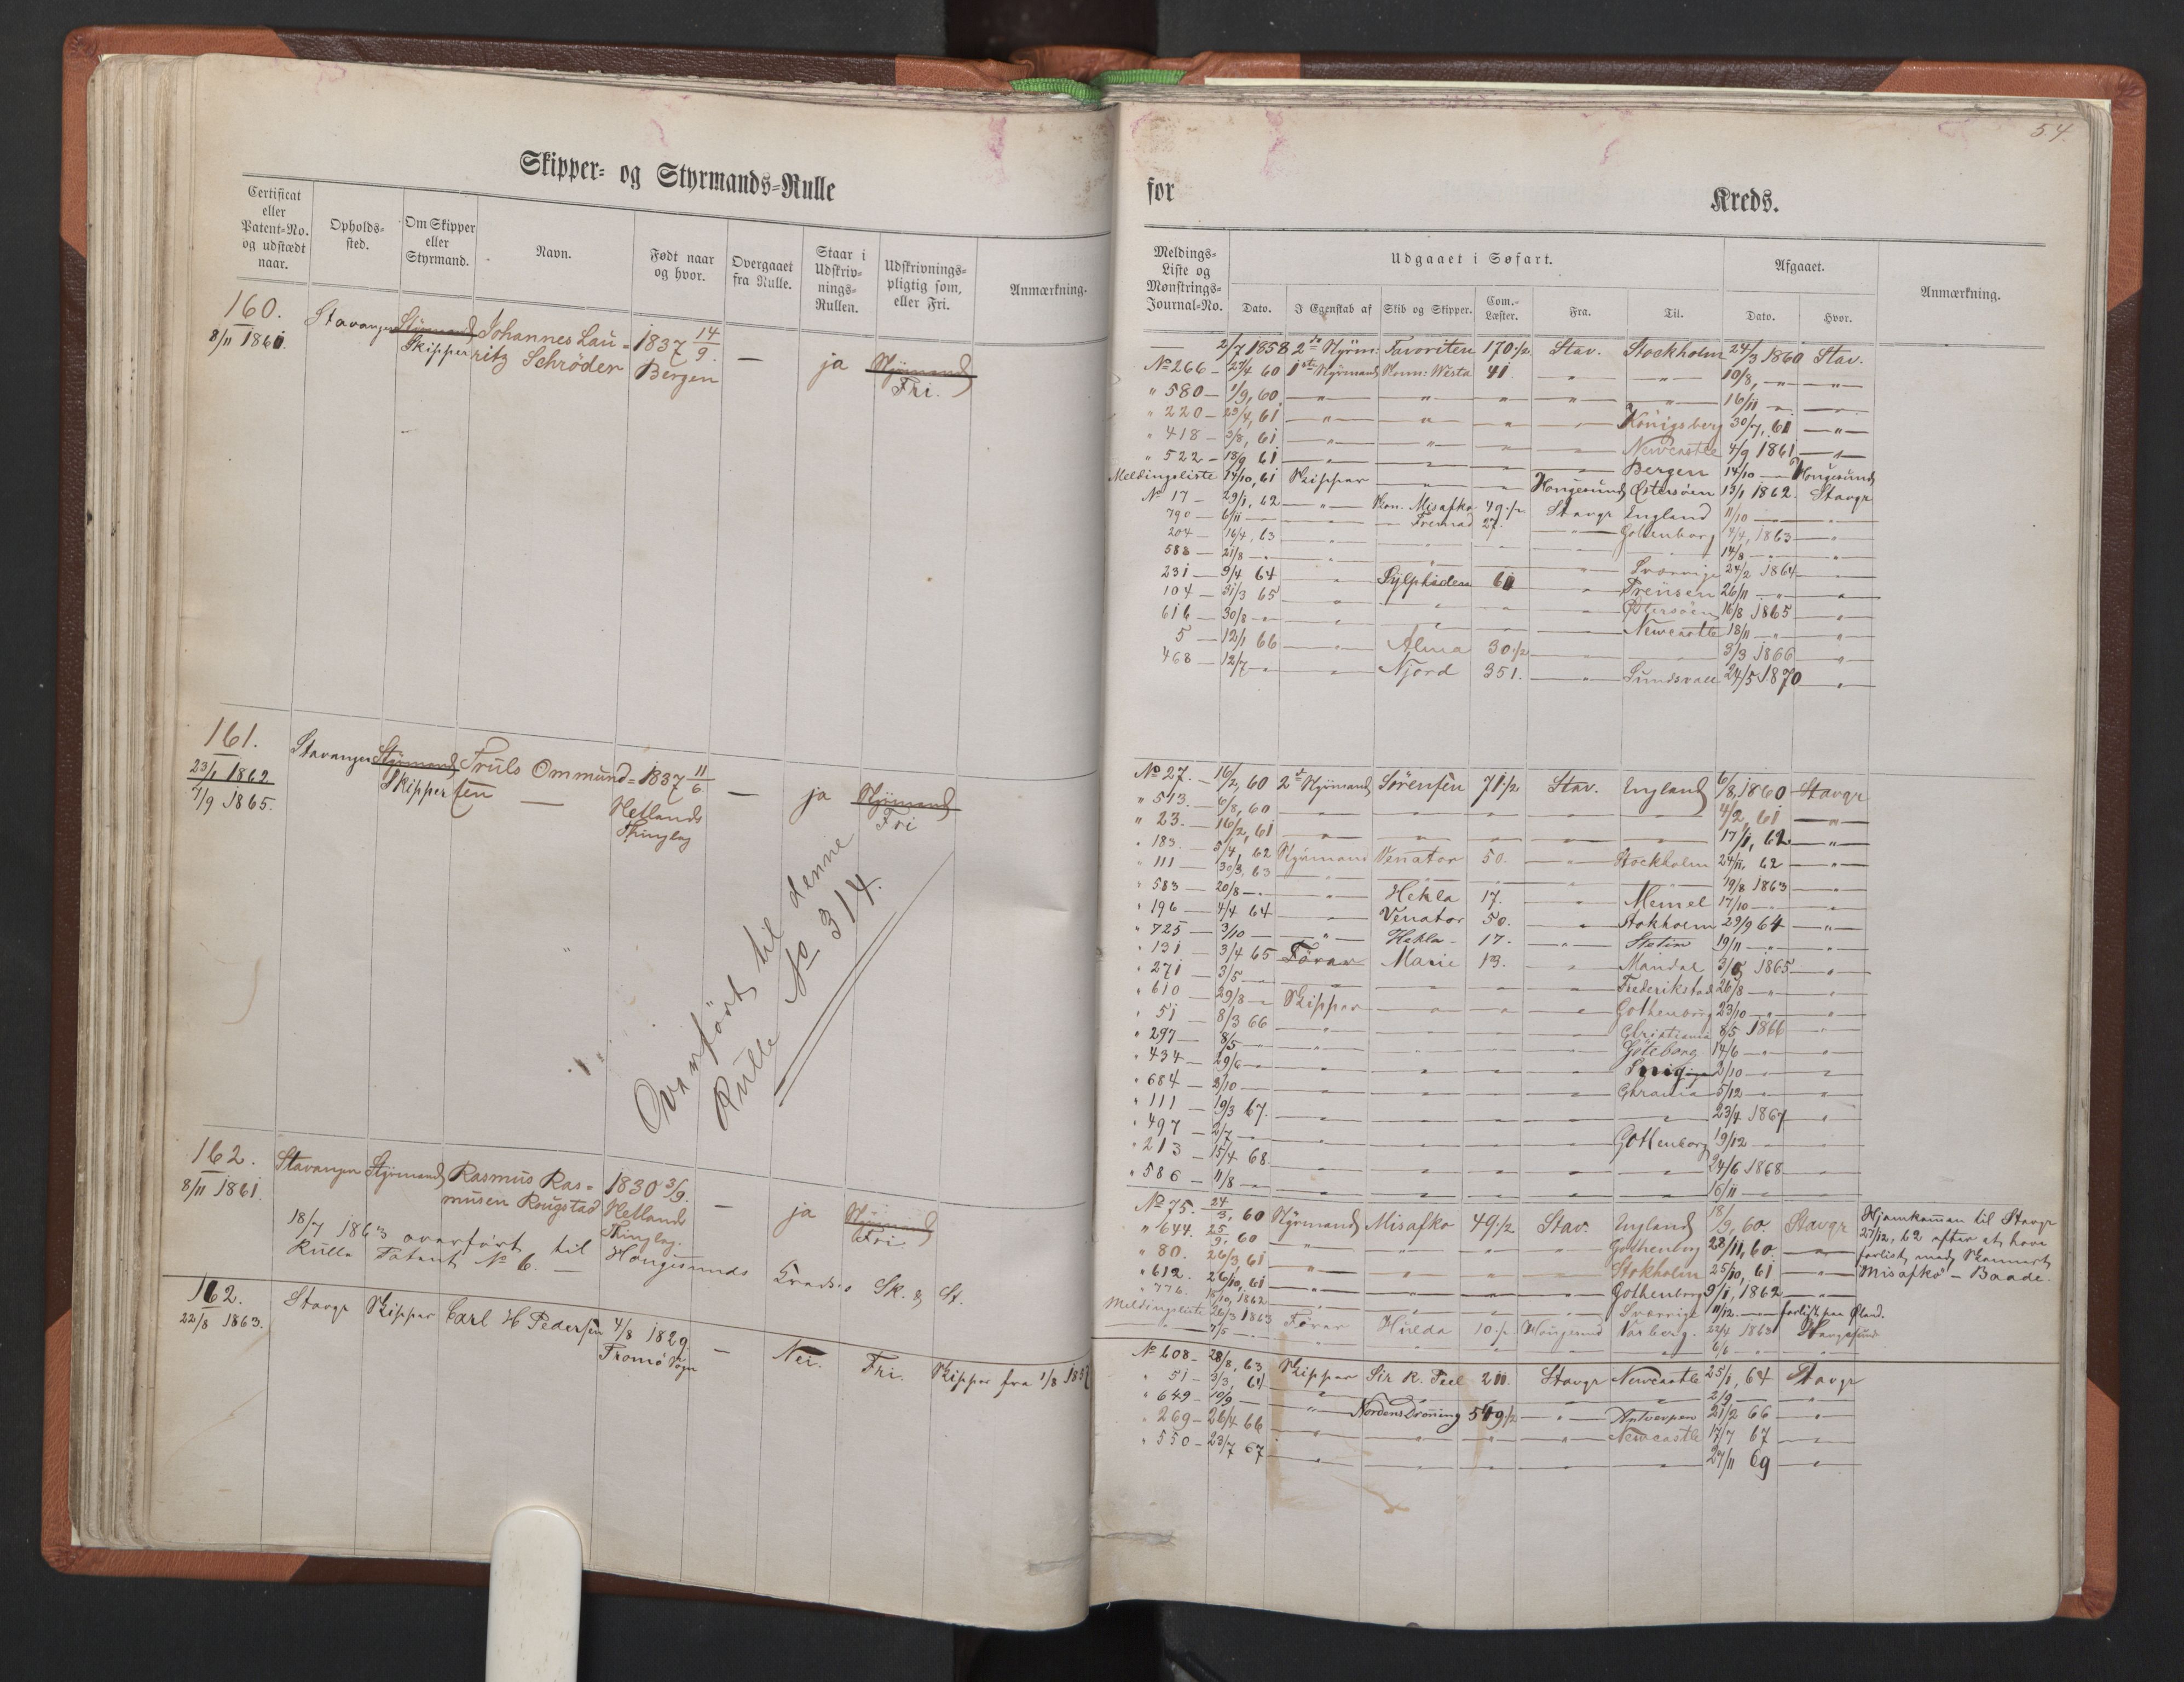 54.
Skipper- og Styrmands-Rulle
Certificat eller Patent-No. og udstædt naar.
Opholds-sted.
Om Skipper eller Styrmand.
Navn.
Født naar og hvor.
Overgaaet fra Rulle.
Staar i Udskriv-nings-Rullen.
Udskrivnings-pligtig som, eller Fri.
Anmærkning.
160. Stavanger Styrmand Johannes Lau- 1837 14/9 — ja Styrmand
8/11 1861. Skipper ritz Schröder Bergen Fri.
161. Stavanger Styrmand Truls Ommund- 1837 11/6 — ja Styrmand
23/1 1862 Skipper sen — Hetlands Fri
4/9 1865. Thinglag
Overført til denne
Rulle No 314.
162. Stavanger Styrmand Rasmus Ras- 1830 3/9. — ja Styrmand
8/11 1861. musen Rougstad Hetlands Fri
Thinglag.
18/7 1863 overført til Hougesunds Kredses Sk. & St.
Rulle Patent No 6. —
162. Stavgr Skipper Carl H Pedersen 4/8 1829. — Nei. Fri. Skipper fra 1/8 185
22/8 1863. Tromö Sogn
for Kreds.
Meldings-Liste og Mønstrings-Journal-No.
Udgaaet i Søfart.
Dato.
I Egenskab af
Skib og Skipper.
Com.-Læster.
Fra.
Til.
Afgaaet.
Dato.
Hvor.
Anmærkning.
— 2/7 1858 2den Styrm: Favoriten 170 1/2 Stav. Stockholm 24/3 1860 Stav.
No 266 — 27/4 60 1ste Styrmand Konn: Westa 41 — " — — " — 10/8, — " — — " —
" 580 — 1/9, 60. — " — " " — " — — " — 16/11 — " — — " —
" 220 — 23/4, 61 — " — " " — " — Königsberg 30/7, 61 — " —
" 418 — 3/8, 61 — " — " " — " — Newcastle 4/9 1861 — " —
" 522 — 18/9 61 — " — — " — " — " — Bergen 14/10 — Hougesund
Meldingsliste 14/10, 61 Skipper — " — " Hougesund Østersöen 13/1 1862. Stavgr
No 17 — 29/1, 62 — " — Kon. Misafko 49 1/2 Stavgr England 11/10 — " —
790 — 6/11 — — " — — Fremad 27. — " — Gothenborg 4/4, 1863 — " —
204 — 16/4, 63 — " — — " — — " — — " — — " — 14/8 — " — "
588 — 21/8 — — " — — " — — " — " Sverrige 24/2 1864 — " —
231 — 9/4 64 " Sylphiden 61 " Preusen 26/11 — " — "
104 — 31/3 65 — " — " — " — " Østersöen 16/8 1865 — "
616 — 30/8 — " — " — " — " — Newcastle 18/11 — " — "
5 — 12/1 66 — " — Alma 30 1/2 — " — — " — 3/3 1866 — "
468 — 12/7 — " — " — Njord 351. — " — Sundsvall 24/5 1870 — " —
No 27. — 16/2, 60 2den Styrmand Sørensen 71 1/2 Stav. England 6/8, 1860 Stavgr
" 513. — 6/8, 60 — " — — " — " — " — — " — 4/2, 61 — " —
" 23. — 16/2, 61 — " — — " — " — " — — " — 17/1, 62 — " —
" 183. — 5/4, 62 Styrmand Venator 50. — " — Stockholm 24/11, 62 — " —
" 111 — 30/3, 63 — " — — " — — " — — " — — " — 19/8 1863 — " —
" 583 — 20/8 — " — " Hekla 17. " Memel 17/10 — " — "
" 196 — 4/4 64 — " — Venator 50. " Stokholm 29/9 64 — " —
" 725 — 3/10 — — " — Hekla 17. — " — Stetin 19/11 — " — "
" 131 — 3/4 65 Fører Marie 13. " Mandal 3/5 1865 — "
" 271 — 3/5 — " — — " — — " — — " — Frederikstad 26/8 — " — "
" 610 — 29/8 — " Skipper — " — " " Gothenborg 23/10 — " — "
" 51 — 8/3 66 " — " — " — " — Christiania 8/5 1866 "
" 297 — 8/5 — " — " — — " — — " — — " — Göteborg 14/6 — " — "
" 434 — 29/6 — " — " — — " — — " — — " — 2/10 — " — "
" 684 — 2/10 — — " — — " — — " — — " — Chrania 5/12 — " — "
" 111 — 19/3 67. — " — — " — — " — — " — — " — 23/4 1867 "
" 497 — 2/7 — — " — — " — — " — — " — Gothenborg 19/12 — "
" 213 — 15/4 68. — " — — " — — " — — " — — " — 24/6 1868 "
" 586 — 11/8 — — " — — " — — " — — " — — " — 16/11 — " — "
No 75. 24/3, 60 Styrmand Misafko 49 1/2 Stav. England 18/9, 60 Stavgr Hjemkommen til Stavgr
" 644. 25/9, 60 " " " — " — Gothenborg 28/11, 60. — " — 27/12, 62 efter at have
" 80. 26/3, 61 " — " — " " Stokholm 25/10, 61 — " — forlist med Skonnert
" 612. 26/10, 61 — " — — " — " — " — Gothenborg 9/1, 1862 — " — Misafko — Baade.
" 776. 18/10, 1862 — " — — " — — " — — " — Sverrige 11/12. — forlist paa Øland.
Meldingsliste 26/3 1863 Fører Hulda 10 1/2 Hougesund Varberg. 22/4 1863 Hougesund
— " — 7/5 — — " — — " — — " — — " — — " — 6/6 — "
No 608 — 28/8, 63 Skipper Sir R. Peel 211. Stavgr Newcastle 25/1, 64 Stavgr
" 51 — 3/3, 64 — " — — " — — " — — " — — " — 2/9 — — " —
" 649 — 10/9 — — " — Nordens Droning 549 1/2 — " — Antverpen 21/2 66 — " —
" 269 — 26/4 66 " — " — — " — — " — Newcastle 17/7 67 — " —
" 550 — 23/7 67 — " — — " — — " — — " — — " — 27/11 69 — " —